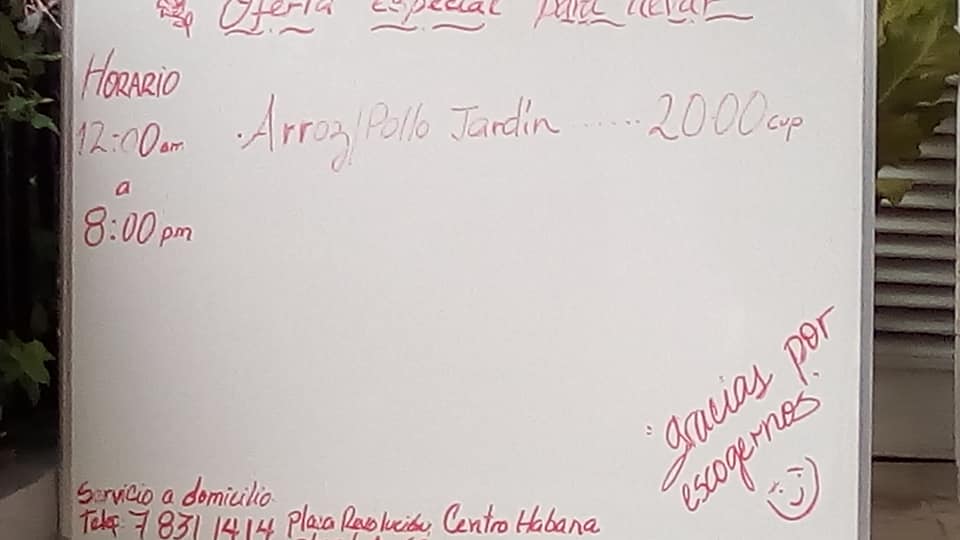 Oferta Especial para llevar
HORARIO
12:00 am
a
8:00 pm
·Arroz/Pollo Jardín ...... 20.00 cup
gracias por
escogernos
Servicio a domicilio
Telef: 7 831 1414 Plaza Revolución, Centro Habana